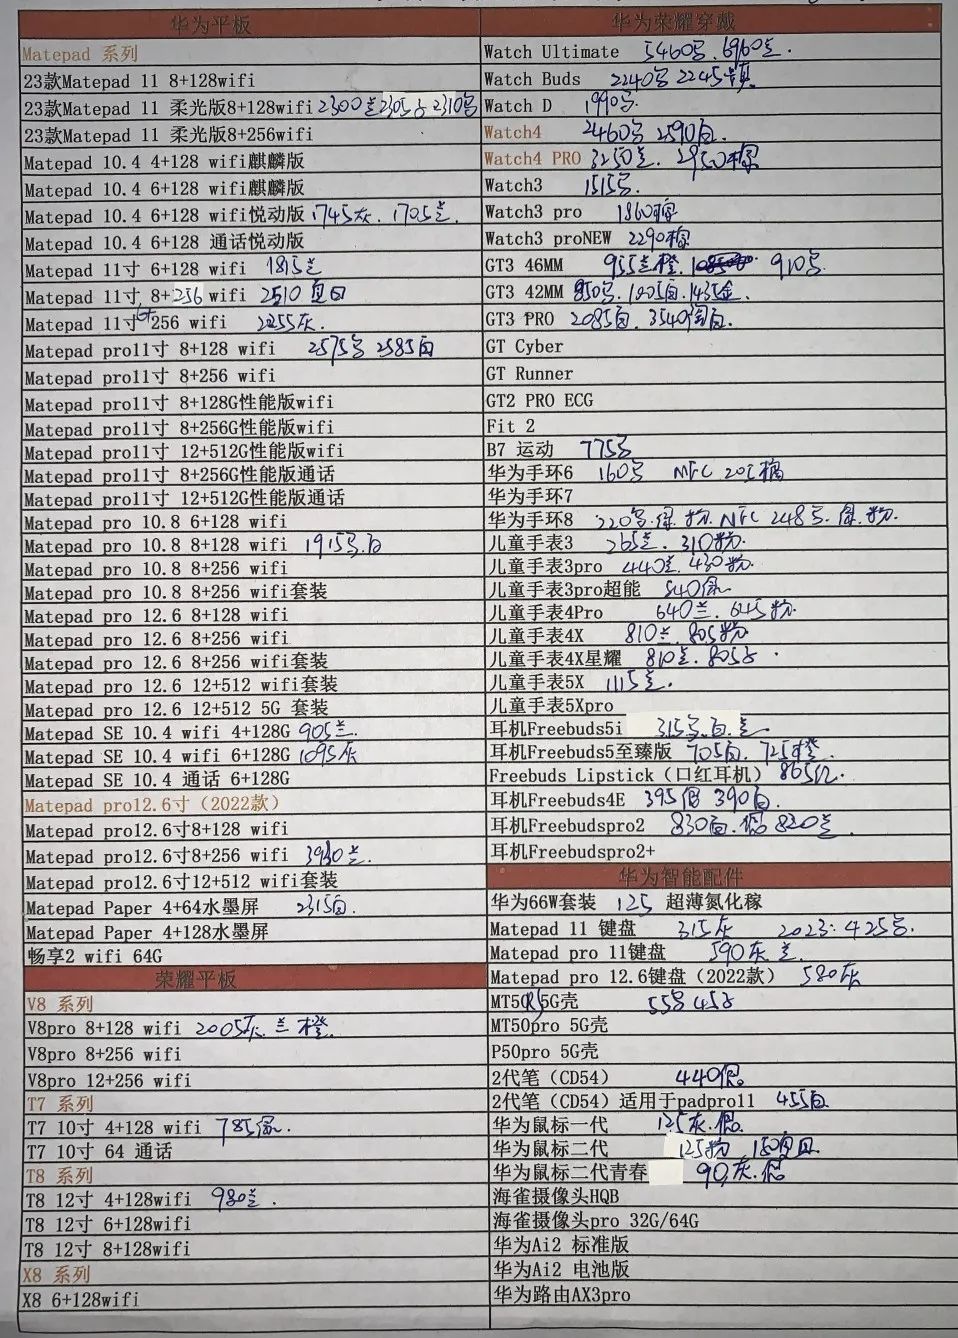 华为平板
Matepad 系列
23款Matepad 11 8+128wifi
23款Matepad 11 柔光版8+128wifi 2300兰 2305 2310
23款Matepad 11 柔光版8+256wifi
Matepad 10.4 4+128 wifi麒麟版
Matepad 10.4 6+128 wifi麒麟版
Matepad 10.4 6+128 wifi悦动版 1745灰. 1705兰.
Matepad 10.4 6+128 通话悦动版
Matepad 11寸 6+128 wifi 1815兰
Matepad 11寸 8+256 wifi 2510
Matepad 11寸 6+256 wifi 2255灰.
Matepad pro11寸 8+128 wifi 2575 2585白
Matepad pro11寸 8+256 wifi
Matepad pro11寸 8+128G性能版wifi
Matepad pro11寸 8+256G性能版wifi
Matepad pro11寸 12+512G性能版wifi
Matepad pro11寸 8+256G性能版通话
Matepad pro11寸 12+512G性能版通话
Matepad pro 10.8 6+128 wifi
Matepad pro 10.8 8+128 wifi 1915 白
Matepad pro 10.8 8+256 wifi
Matepad pro 10.8 8+256 wifi套装
Matepad pro 12.6 8+128 wifi
Matepad pro 12.6 8+256 wifi
Matepad pro 12.6 8+256 wifi套装
Matepad pro 12.6 12+512 wifi套装
Matepad pro 12.6 12+512 5G 套装
Matepad SE 10.4 wifi 4+128G 905兰.
Matepad SE 10.4 wifi 6+128G 1095灰
Matepad SE 10.4 通话 6+128G
Matepad pro12.6寸（2022款）
Matepad pro12.6寸8+128 wifi
Matepad pro12.6寸8+256 wifi 兰.
Matepad pro12.6寸12+512 wifi套装
Matepad Paper 4+64水墨屏 2315白.
Matepad Paper 4+128水墨屏
畅享2 wifi 64G
荣耀平板
V8 系列
V8pro 8+128 wifi 2005灰. 兰 橙.
V8pro 8+256 wifi
V8pro 12+256 wifi
T7 系列
T7 10寸 4+128 wifi 785
T7 10寸 64 通话
T8 系列
T8 12寸 4+128wifi 980兰.
T8 12寸 6+128wifi
T8 12寸 8+128wifi
X8 系列
X8 6+128wifi
华为荣耀穿戴
Watch Ultimate 5460 6960兰.
Watch Buds 2240 2245
Watch D 1990
Watch4 2460 2590白.
Watch4 PRO 3250兰. 2950棕
Watch3 1515
Watch3 pro 1860棕
Watch3 proNEW 2290棕
GT3 46MM 955兰橙. 910
GT3 42MM 850 1005白. 1435金.
GT3 PRO 2085白. 3540白.
GT Cyber
GT Runner
GT2 PRO ECG
Fit 2
B7 运动 775
华为手环6 160 NFC 205橘
华为手环7
华为手环8 220 粉. NFC 248 粉.
儿童手表3 265兰. 310粉.
儿童手表3pro 440兰. 430粉.
儿童手表3pro超能 840
儿童手表4Pro 640兰. 645粉.
儿童手表4X 810兰 805粉
儿童手表4X星耀 810兰. 805
儿童手表5X 1115兰.
儿童手表5Xpro
耳机Freebuds5i 315 白. 兰
耳机Freebuds5至臻版 705白. 725橙.
Freebuds Lipstick（口红耳机） 865红.
耳机Freebuds4E 395银 390白.
耳机Freebudspro2 830白. 银 820兰.
耳机Freebudspro2+
华为智能配件
华为66W套装 125 超薄氮化稼
Matepad 11 键盘 315灰 2023: 425
Matepad pro 11键盘 590灰 兰.
Matepad pro 12.6键盘（2022款） 580灰
MT50(R)5G壳 55 45
MT50pro 5G壳
P50pro 5G壳
2代笔（CD54） 440银.
2代笔（CD54）适用于padpro11 455白
华为鼠标一代 125灰. 银.
华为鼠标二代 125粉 150
华为鼠标二代青春 90灰. 银
海雀摄像头HQB
海雀摄像头pro 32G/64G
华为Ai2 标准版
华为Ai2 电池版
华为路由AX3pro